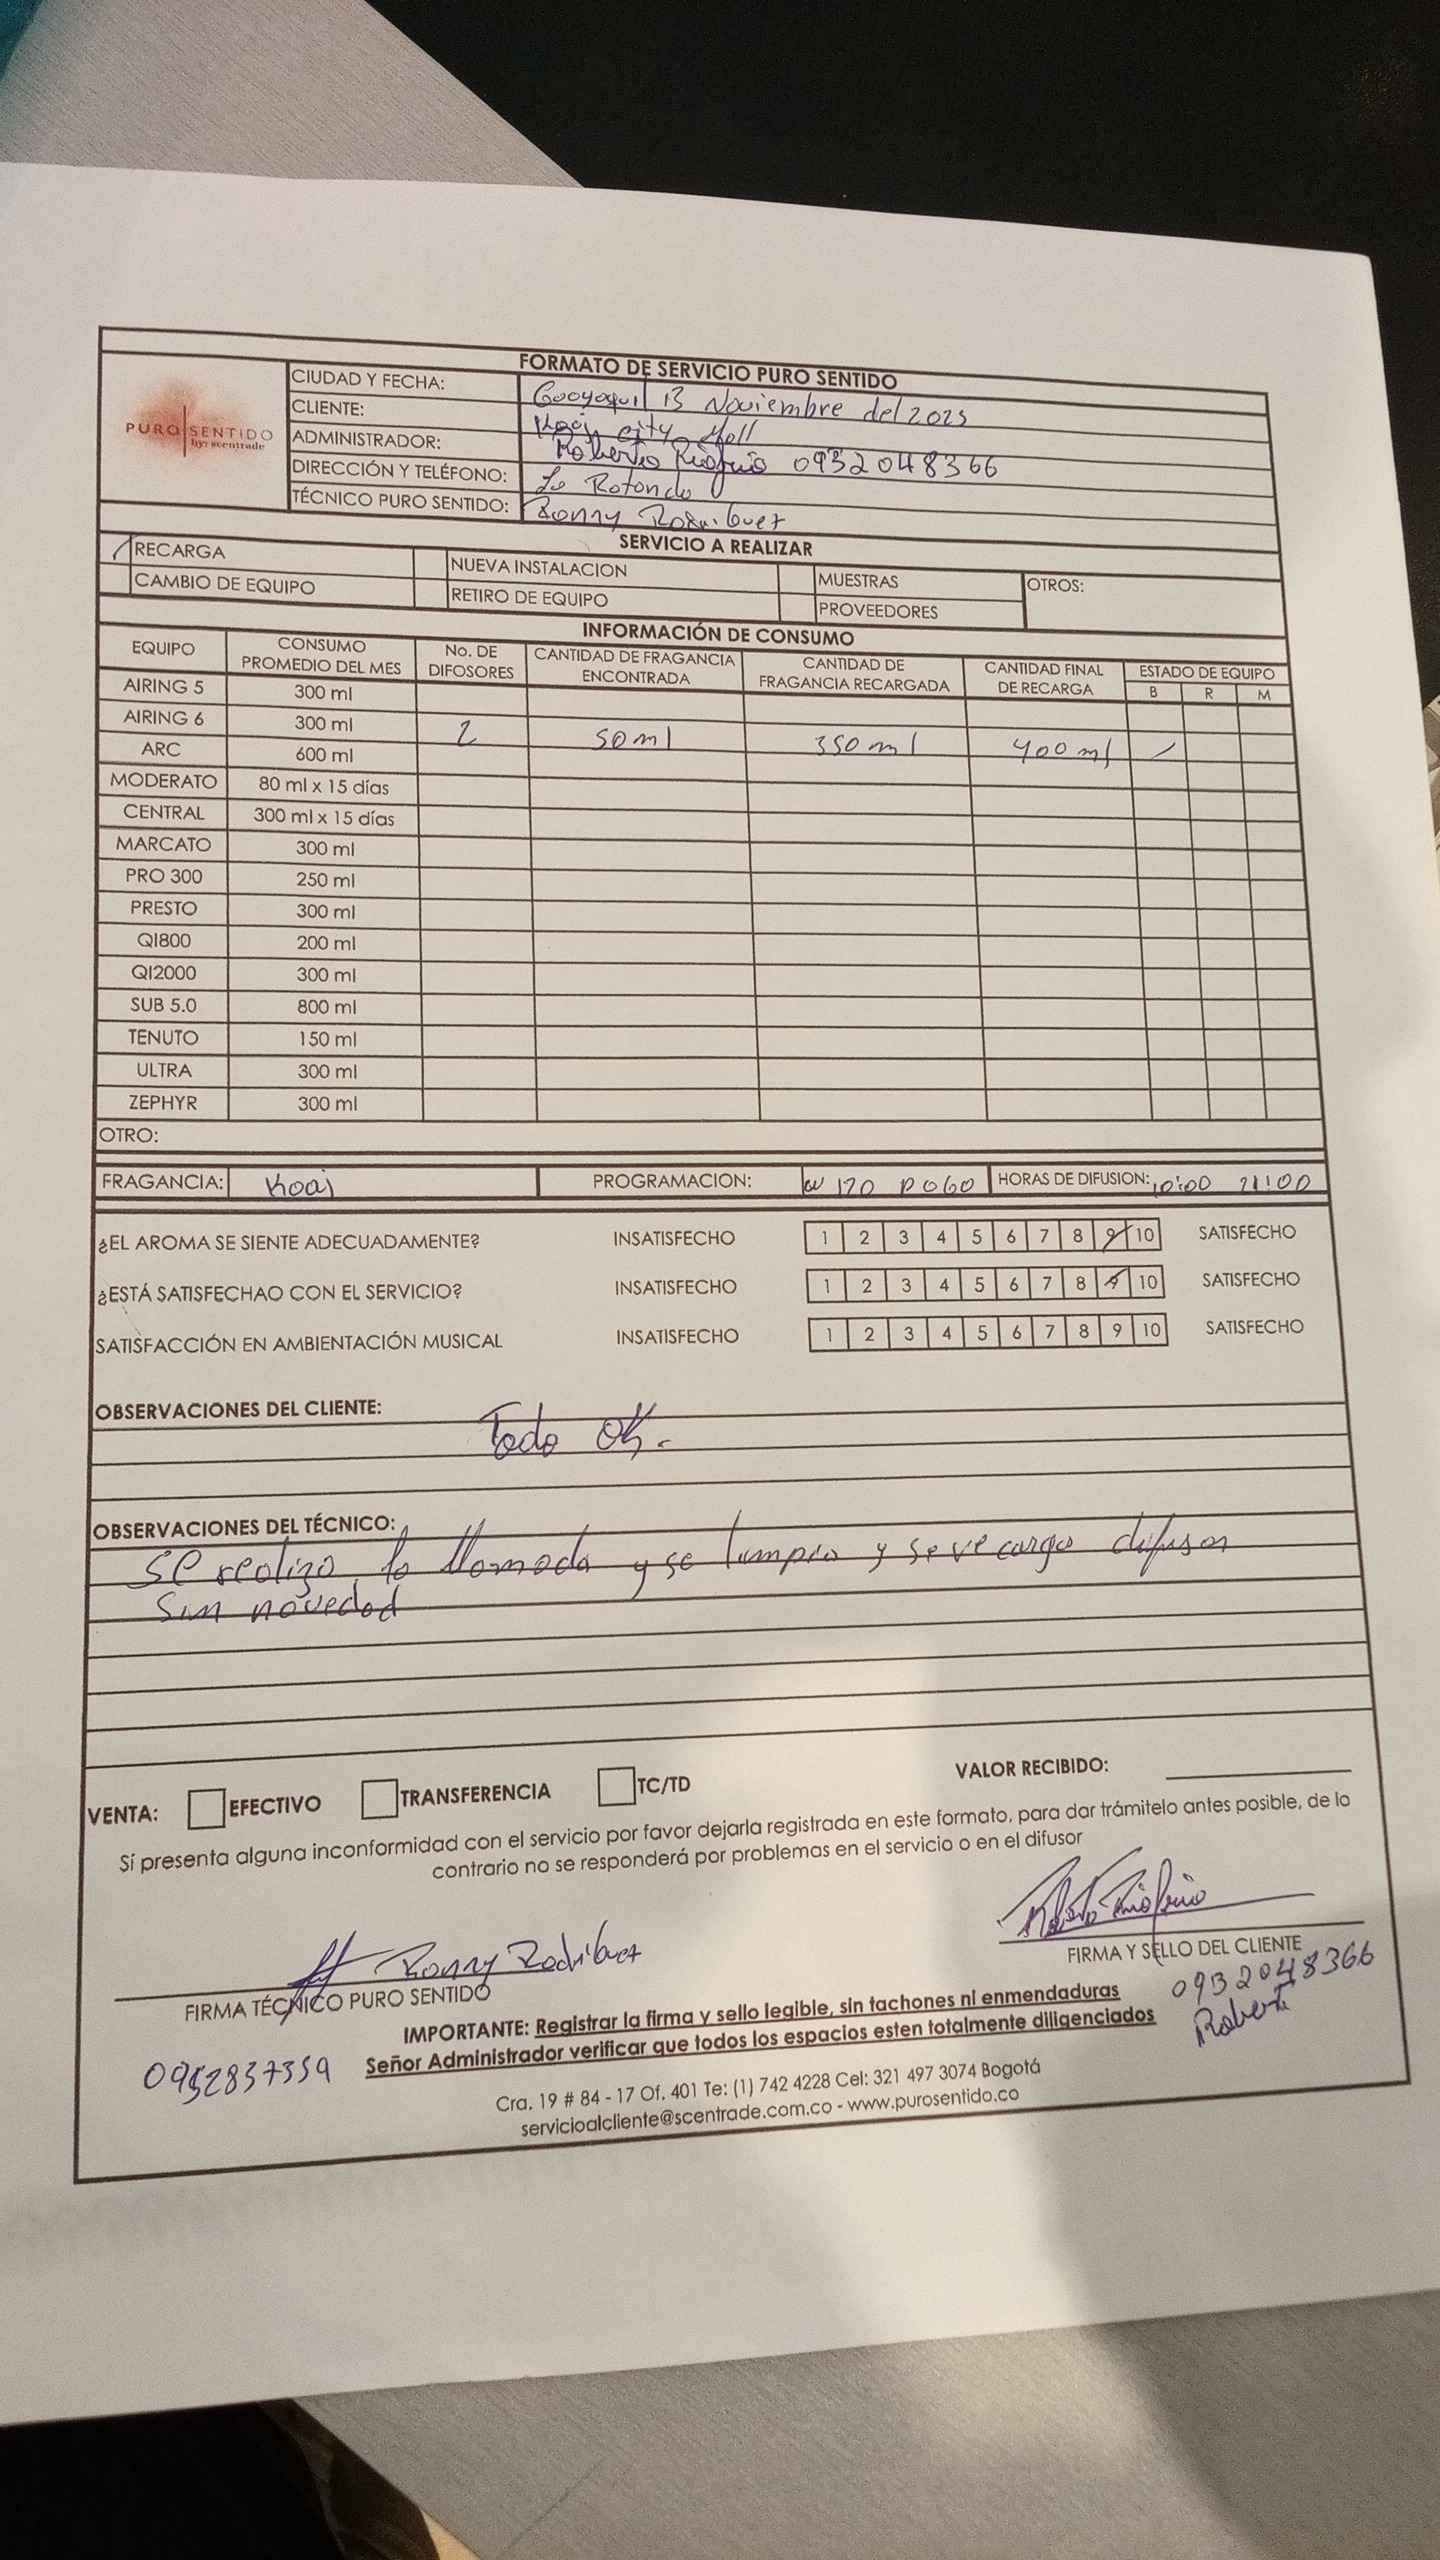 FORMATO DE SERVICIO PURO SENTIDO
PURO SENTIDO
by: scentrade
CIUDAD Y FECHA: Guayaquil 13 Noviembre del 2025
CLIENTE: Koaj city Mall
ADMINISTRADOR: Roberto Riofrio 0932048366
DIRECCIÓN Y TELÉFONO: La Rotonda
TÉCNICO PURO SENTIDO: Ronny Rodriguez
SERVICIO A REALIZAR
/ RECARGA NUEVA INSTALACION MUESTRAS OTROS:
CAMBIO DE EQUIPO RETIRO DE EQUIPO PROVEEDORES
INFORMACIÓN DE CONSUMO
EQUIPO CONSUMO PROMEDIO DEL MES No. DE DIFOSORES CANTIDAD DE FRAGANCIA ENCONTRADA CANTIDAD DE FRAGANCIA RECARGADA CANTIDAD FINAL DE RECARGA ESTADO DE EQUIPO
B R M
AIRING 5 300 ml
AIRING 6 300 ml 2 50 ml 350 ml 400 ml /
ARC 600 ml
MODERATO 80 ml x 15 días
CENTRAL 300 ml x 15 días
MARCATO 300 ml
PRO 300 250 ml
PRESTO 300 ml
QI800 200 ml
QI2000 300 ml
SUB 5.0 800 ml
TENUTO 150 ml
ULTRA 300 ml
ZEPHYR 300 ml
OTRO:
FRAGANCIA: Koaj PROGRAMACION: W 170 P 060 HORAS DE DIFUSION: 10:00 21:00
¿EL AROMA SE SIENTE ADECUADAMENTE? INSATISFECHO 1 2 3 4 5 6 7 8 9 10 SATISFECHO
¿ESTÁ SATISFECHAO CON EL SERVICIO? INSATISFECHO 1 2 3 4 5 6 7 8 9 10 SATISFECHO
SATISFACCIÓN EN AMBIENTACIÓN MUSICAL INSATISFECHO 1 2 3 4 5 6 7 8 9 10 SATISFECHO
OBSERVACIONES DEL CLIENTE:
Todo OK.
OBSERVACIONES DEL TÉCNICO:
Se realizo la llamada y se limpio y se recargo difusor
sin novedad
VENTA: EFECTIVO TRANSFERENCIA TC/TD VALOR RECIBIDO:
Sí presenta alguna inconformidad con el servicio por favor dejarla registrada en este formato, para dar trámitelo antes posible, de lo
contrario no se responderá por problemas en el servicio o en el difusor
Ronny Rodriguez
Roberto Riofrio
FIRMA TÉCNICO PURO SENTIDO
FIRMA Y SELLO DEL CLIENTE
0932048366
Roberto
IMPORTANTE: Registrar la firma y sello legible, sin tachones ni enmendaduras
Señor Administrador verificar que todos los espacios esten totalmente diligenciados
0952837359
Cra. 19 # 84 - 17 Of. 401 Te: (1) 742 4228 Cel: 321 497 3074 Bogotá
servicioalcliente@scentrade.com.co - www.purosentido.co